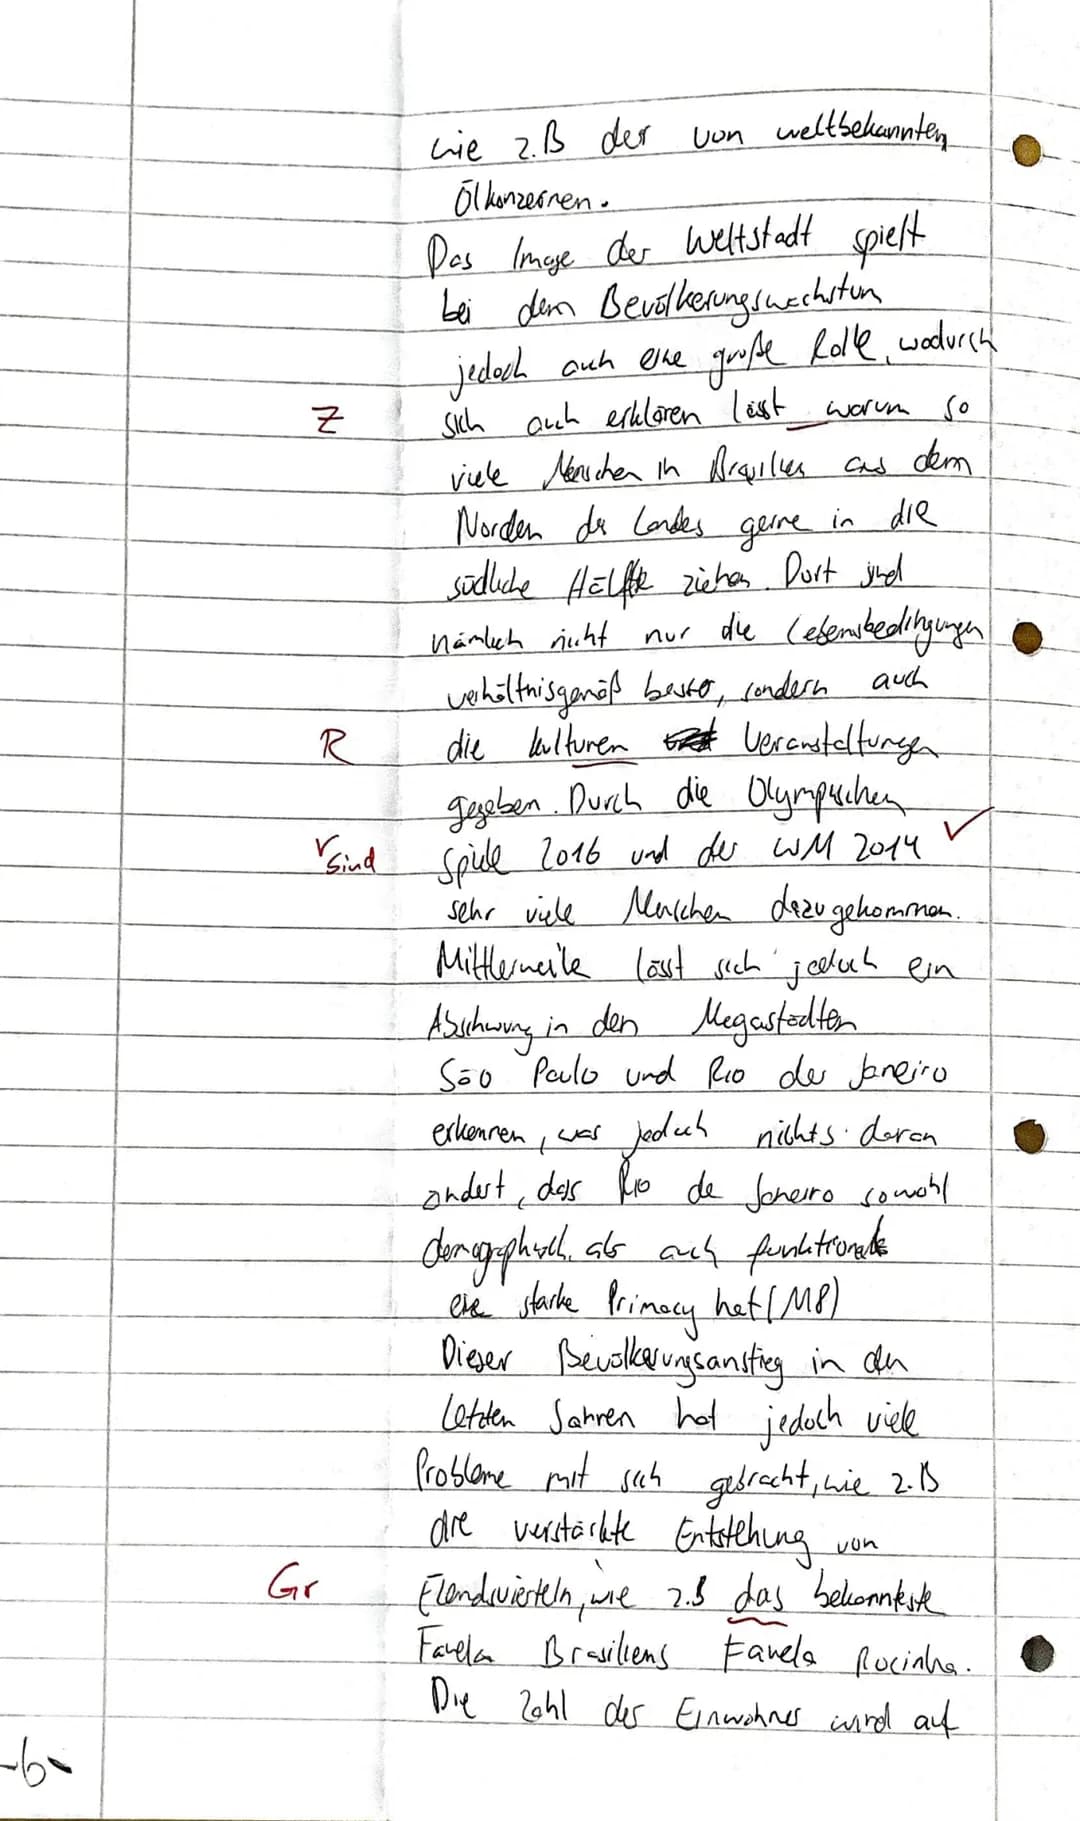 wie z.B der von weltbekannten
Ölkonzernen.
Das Image der Weltstadt spielt
bei dem Bevölkerungswachstum
jedoch auch eine große Rolle, wodurch
Z sich auch erklären lässt warum so
viele Menschen in Brasilien aus dem
Norden des Landes gerne in die
südliche Hälfte ziehen. Dort sind
nämlich nicht nur die Lebensbedingungen
verhältnisgemäß besser, sondern auch
R die kulturen Veranstaltungen
gegeben. Durch die Olympischen
sind Spiele 2016 und der WM 2014 ✓
sehr viele Menschen dazugekommen.
Mittlerweile lässt sich jedoch ein
Abschwung in den Megastädten
São Paulo und Rio de Janeiro
erkennen, was jedoch nichts daran
ändert, dass Rio de Janeiro sowohl
demographisch als auch funktionale
eine starke Primacy hat (M8)
Dieser Bevölkerungsanstieg in den
letzten Jahren hat jedoch viele
Probleme mit sich gebracht, wie z.B
die verstärkte Entstehung von
Gr Elendsvierteln, wie z.B das bekannteste
Favela Brasiliens Favela Rocinha.
Die Zahl der Einwohner wird auf
-6-